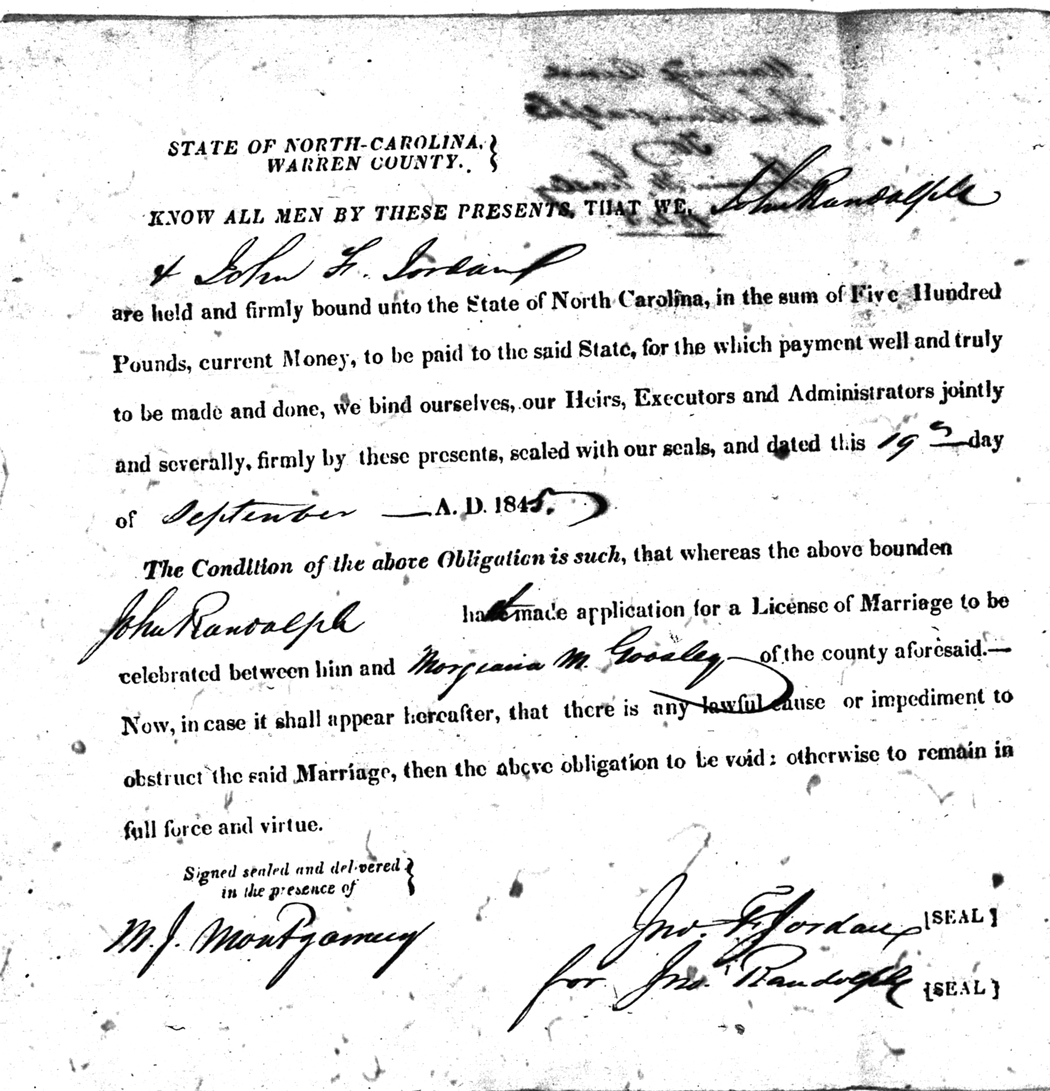 STATE OF NORTH-CAROLINA,
WARREN COUNTY.
KNOW ALL MEN BY THESE PRESENTS, THAT WE, John Randolph
& John F. Jordan
are held and firmly bound unto the State of North Carolina, in the sum of Five Hundred
Pounds, current Money, to be paid to the said State, for the which payment well and truly
to be made and done, we bind ourselves, our Heirs, Executors and Administrators jointly
and severally, firmly by these presents, sealed with our seals, and dated this 19 day
of September A. D. 1845.
The Condition of the above Obligation is such, that whereas the above bounden
John Randolph hath made application for a License of Marriage to be
celebrated between him and M. Goosley of the county aforesaid.—
Now, in case it shall appear hereafter, that there is any lawful cause or impediment to
obstruct the said Marriage, then the above obligation to be void: otherwise to remain in
full force and virtue.
Signed sealed and delivered
in the presence of
M. J. Montgomery
Jno. F. Jordan [SEAL]
for Jno. Randolph [SEAL]